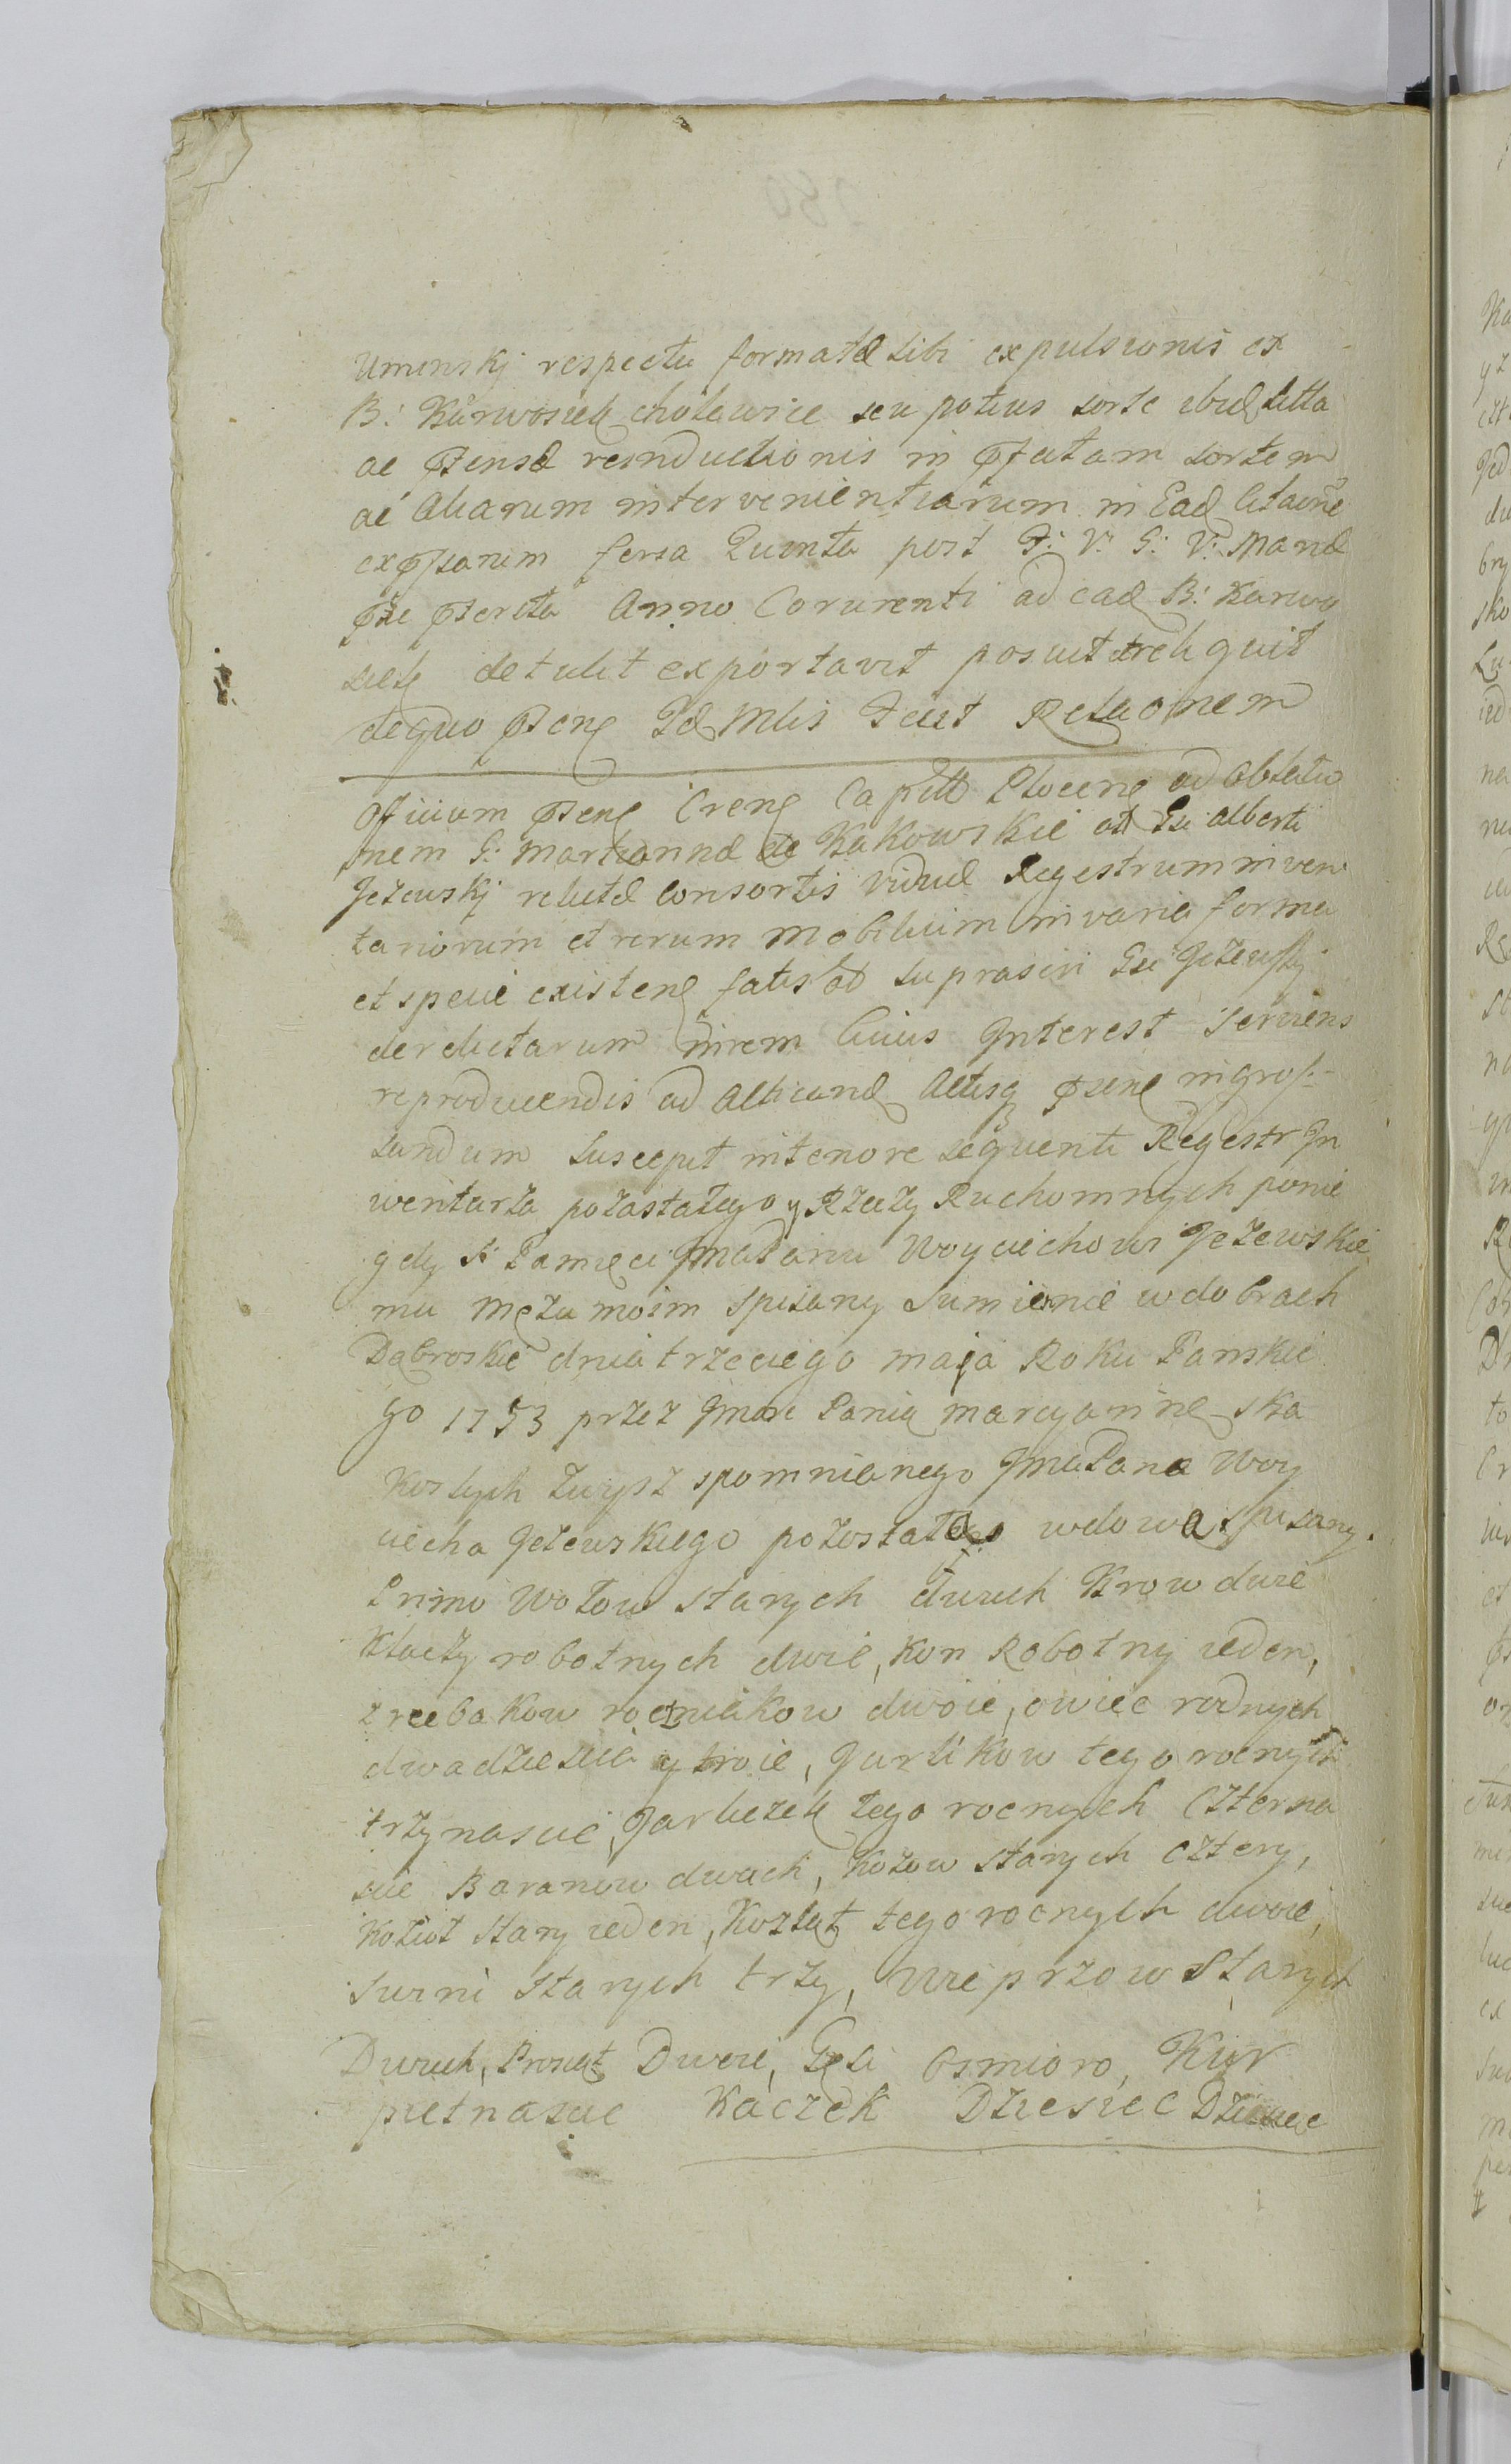 Uminskj respectu formatæ sibi expulsionis ex
B: Karwosieki cholewice seu potius sorte ibid sitta
ac reinductionis in sortem
ac Aliarum intervenientiarum in Ead Citaōne
feria Quinta post F: V: G: V: Mariæ
Anno Currenti ad ead B: Karwo
sieki detulit exportavit posuit et reliquit
dequo Idē Mlis Fecit Relaōnem
Officium Crens Capitt Plocens ad Oblatio
nem G: Mariannæ de Kakowskie olī Gsi Alberti
Jezewskj relictæ Consortis viduæ Regestrum inven
tariorum et rerum Mobilium in varia forma
et specie existenē satis olī suprascri Gsi Jezewskj
derelictarum inrem Cuius Interest Serviens
reproducendis ad Acticandē Actisq ingros-
sandum Suscepit intenore sequenti Regestr In
wentarza pozastałego y Rzeczy Ruchomnych ponie
gdy S: Pamięci Jmć Panu Woyciechowi Jeżewskie
mu Mężu moim spisany Sumienie w dobrach
Dąbroskie dnia trzeciego maja Roku Panskie
go 1753 przez Jmść Panią maryannę s Ka
koskich zwysz spomnianego Jmć Pana Woy
ciecha Jeżewskiego pozostałą wdowę spisany.
Primo Wołow starych dwuch Krow dwie
Klaczy robotnych dwie, Kon Robotny ieden,
zreebakow roczniakow dwoie, owiec rodnych
dwadziescie y troie, Jarlikow tego rocnych
trzynascie, Jarliczek tego rocnych Czterna
scie Baranow dwuch, Kozow starych cztery,
Kozieł stary ieden, Kozląt tego rocnych dwoie,
Swini starych trzy, Wieprzow Starych
Dwuch, Prosiąt Dwoie, Gęsi Osmioro, Kur
pietnascie Kaczek Dziesiec Dziesiec